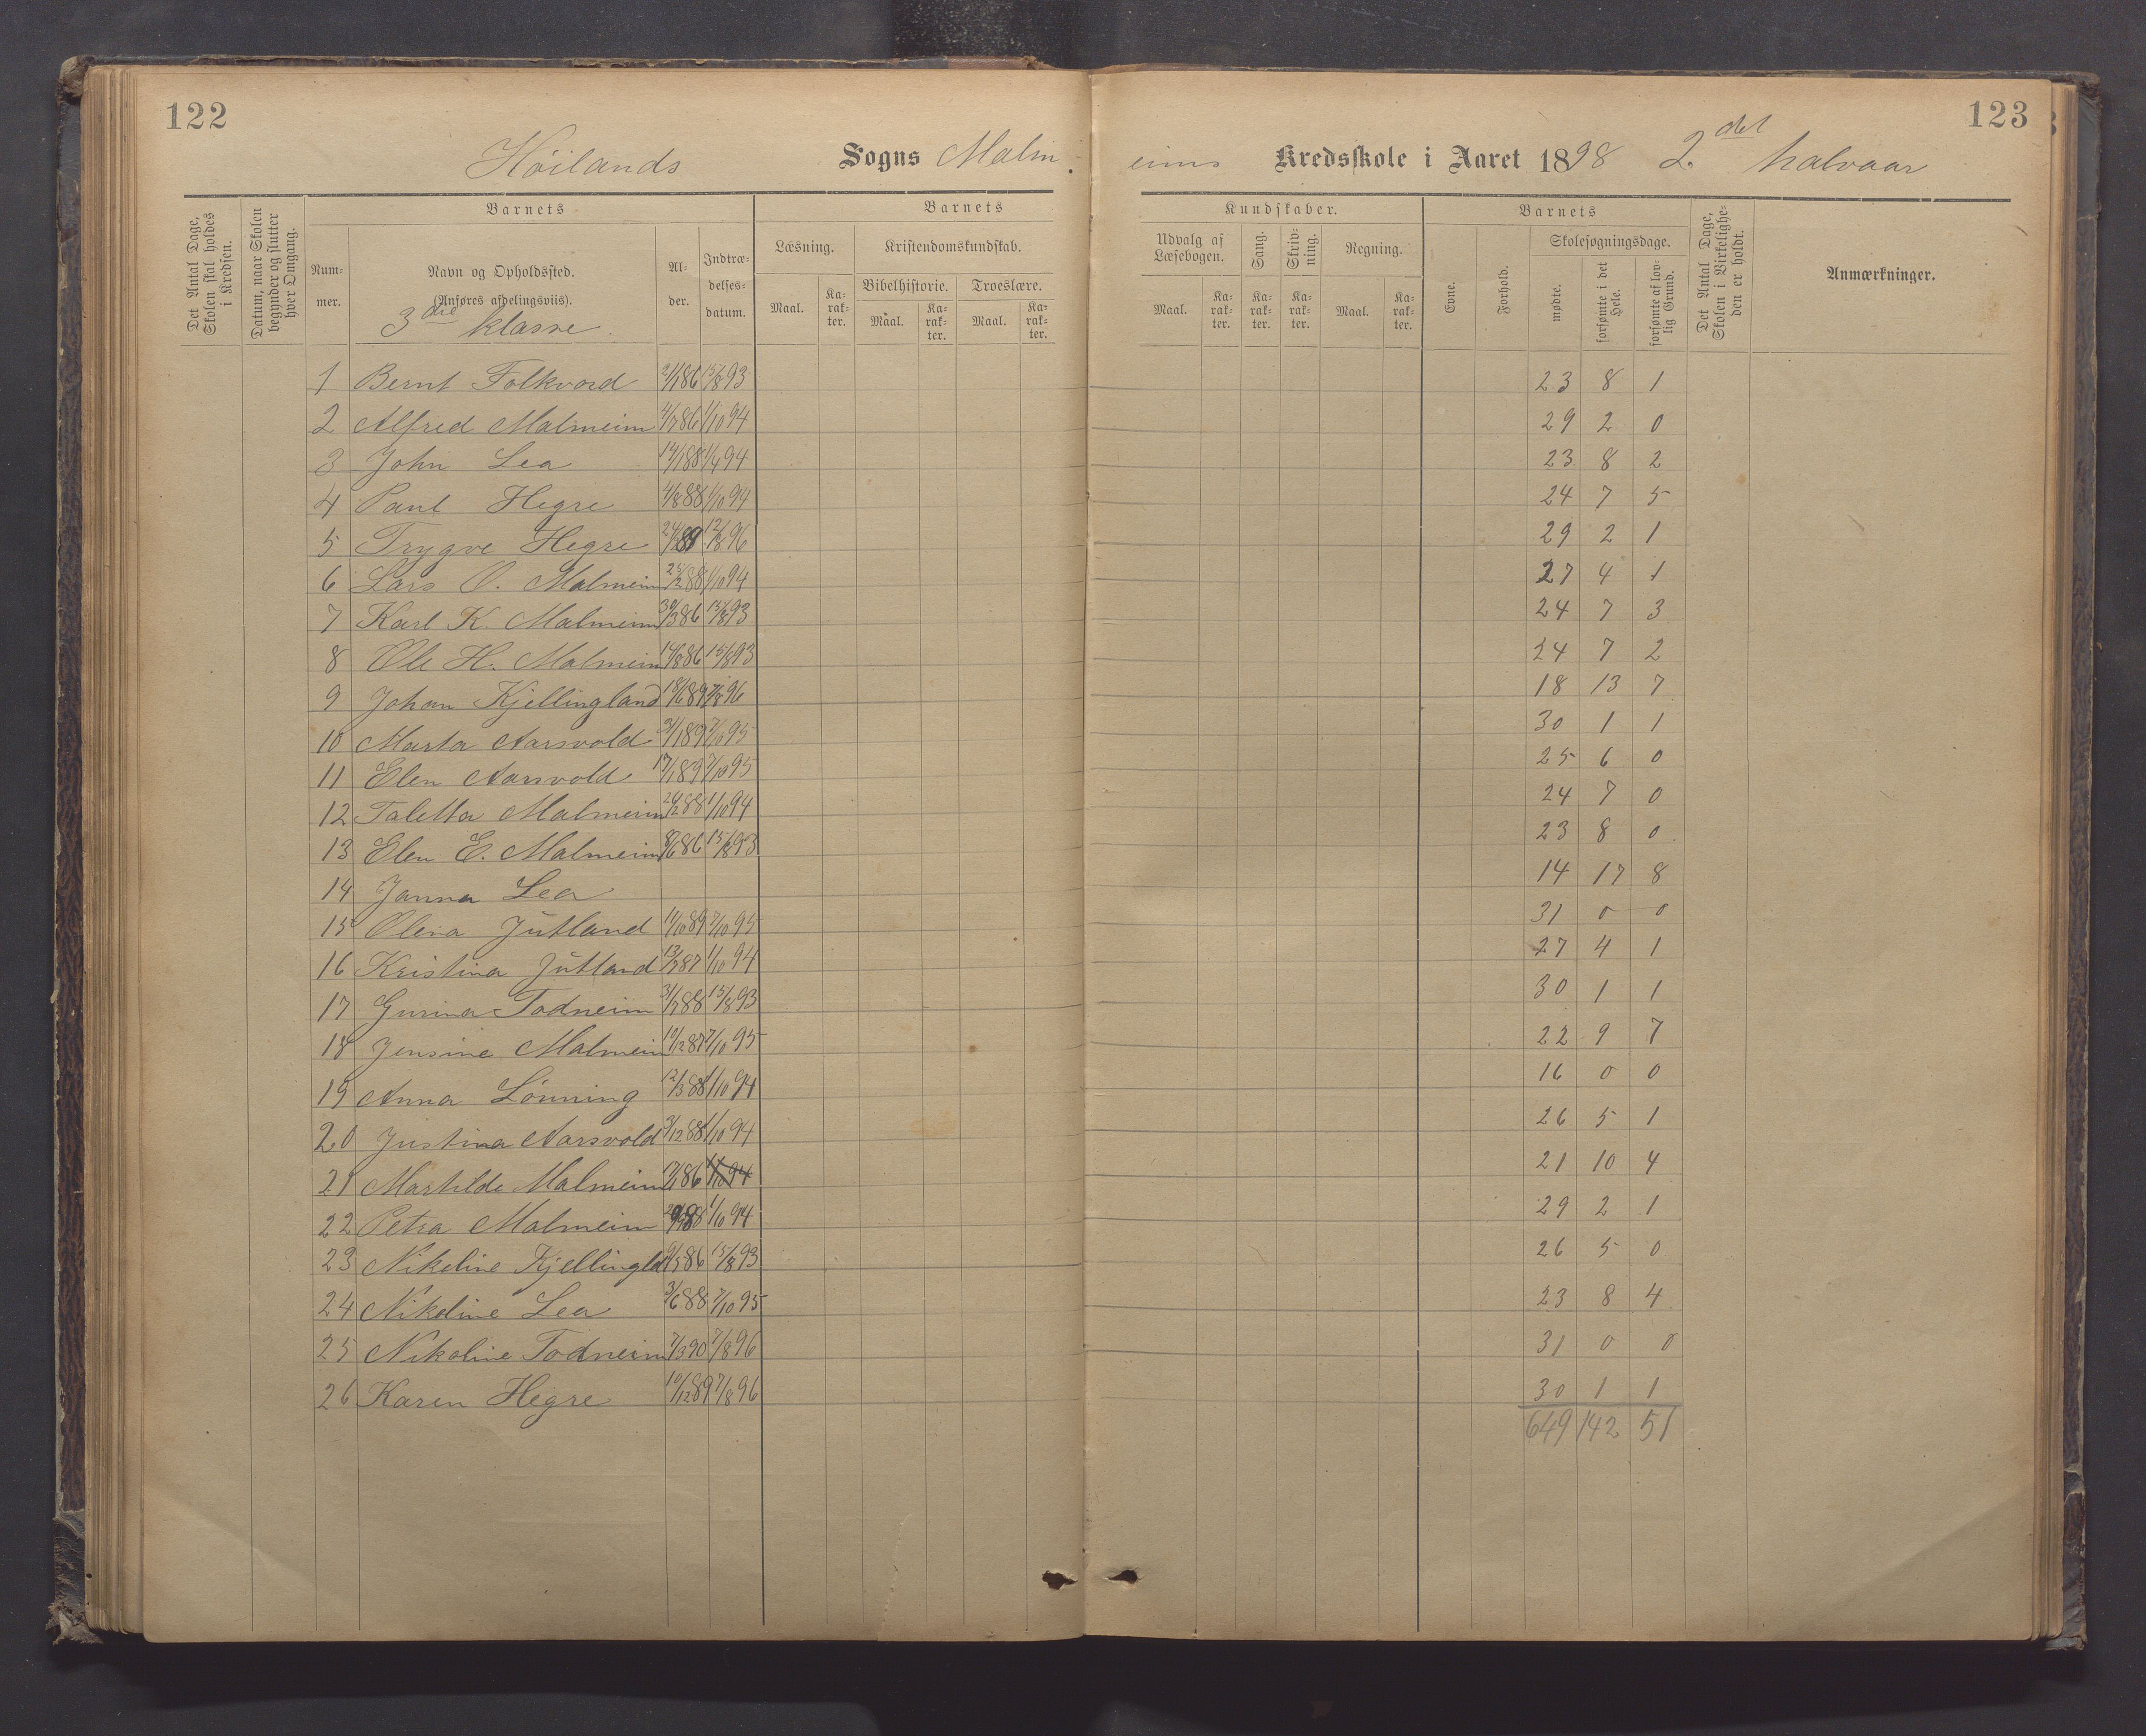 122
123
Höilands Sogns Malm- eims Kredsskole i Aaret 1898 2det halvaar
Det Antal Dage, Skolen skal holdes i Kredsen.
Datum, naar Skolen begynder og slutter hver Omgang.
Barnets
Barnets
Kundskaber.
Barnets
Det Antal Dage, Skolen i Virkelighe- den er holdt.
Anmærkninger.
Num- mer.
Navn og Opholdssted.
(Anføres afdelingsviis).
3die klasse
Al- der.
Indtræ- delses- datum.
Læsning.
Kristendomskundskab.
Udvalg af Læsebogen.
Sang.
Skriv- ning.
Regning.
Evne.
Forhold.
Skolesøgningsdage.
Bibelhistorie.
Troeslære.
Maal.
Ka- rak- ter.
Maal.
Ka- rak- ter.
Maal.
Ka- rak- ter.
Maal.
Ka- rak- ter.
Ka- rak- ter.
Ka- rak- ter.
Maal.
Ka- rak- ter.
mødte.
forsømte i det Hele.
forsømte af lov- lig Grund.
1 Bernt Folkvord 2/1 86 15/8 93 23 8 1
2 Alfred Malmeim 4/7 86 1/10 94 29 2 0
3 John Lea 14/1 88 1/4 94 23 8 2
4 Paul Hegre 4/8 88 1/10 94 24 7 5
5 Trygve Hegre 89 12/8 96 29 2 1
6 Lars O. Malmeim 25/2 88 1/10 94 27 4 1
7 Karl K. Malmeim 30/3 86 15/8 93 24 7 3
8 Ole H. Malmeim 14/8 86 15/8 93 24 7 2
9 Johan Kjellingland 18/6 89 7/8 96 18 13 7
10 Marta Aarsvold 31/1 89 7/10 95 30 1 1
11 Elen Aarsvold 17/1 89 7/10 95 25 6 0
12 Taletta Malmeim 26/2 88 1/10 94 24 7 0
13 Elen E. Malmeim 8/6 86 15/8 93 23 8 0
14 Janna Lea 14 17 8
15 Olena Jutland 11/10 89 7/10 95 31 0 0
16 Kristina Jutland 13/7 87 1/10 94 27 4 1
17 Gurina Todneim 31/7 88 15/8 93 30 1 1
18 Jensine Malmeim 10/12 87 7/10 95 22 9 7
19 Anna Lönning 12/3 88 1/10 94 16 0 0
20 Justina Aarsvold 3/12 88 1/10 94 26 5 1
21 Martilde Malmeim 86 1/10 94 21 10 4
22 Petra Malmeim 88 1/10 94 29 2 1
23 Nikeline Kjellingld 6/5 86 15/8 93 26 5 0
24 Nikoline Lea 3/6 88 7/10 95 23 8 4
25 Nikoline Todneim 7/3 90 7/8 96 31 0 0
26 Karen Hegre 10/12 89 7/8 96 30 1 1
649 142 51